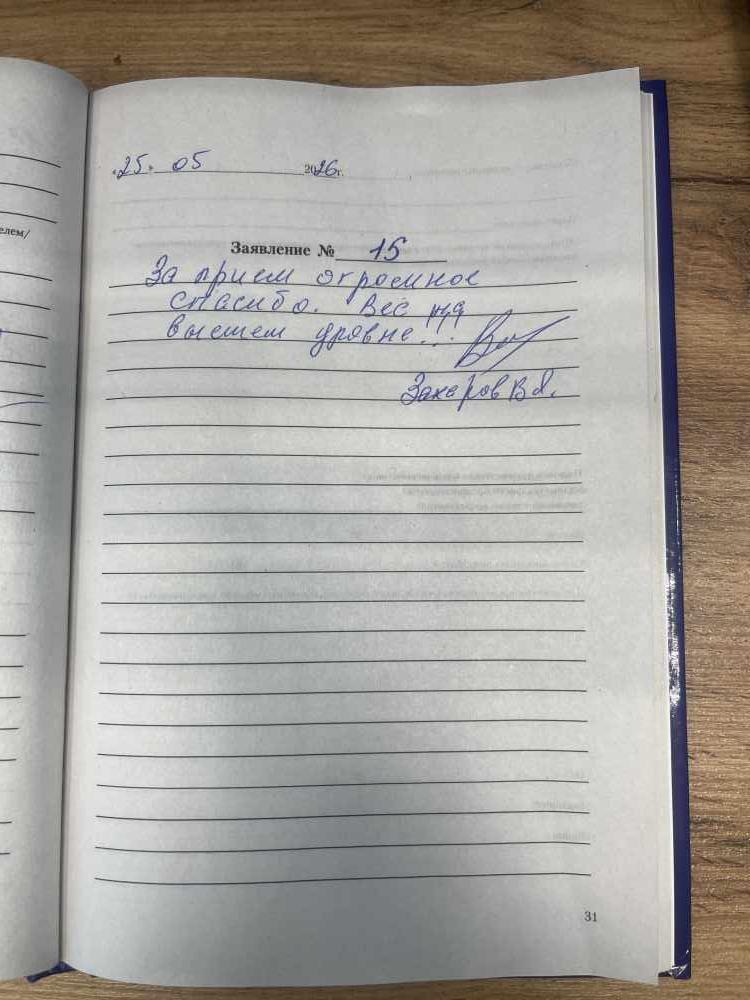 елем/
«25» 05 2026г.
Заявление № 15
За прием огромное
спасибо. Все на
высшем уровне...
Захаров В.Я.
31